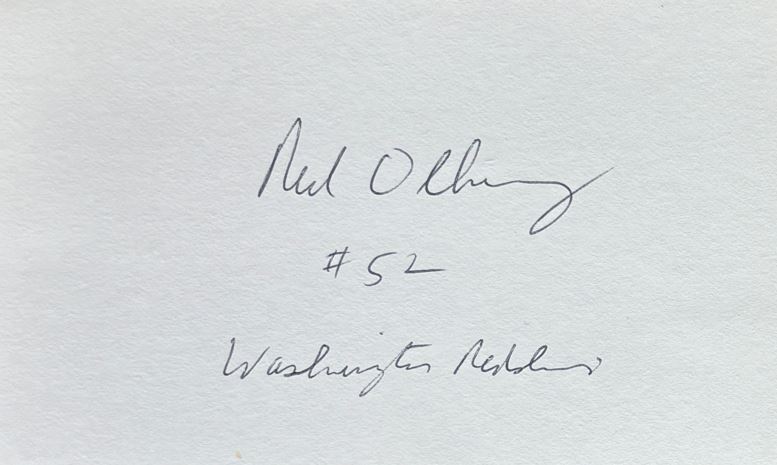 Neal Olkewicz
#52
Washington Redskins